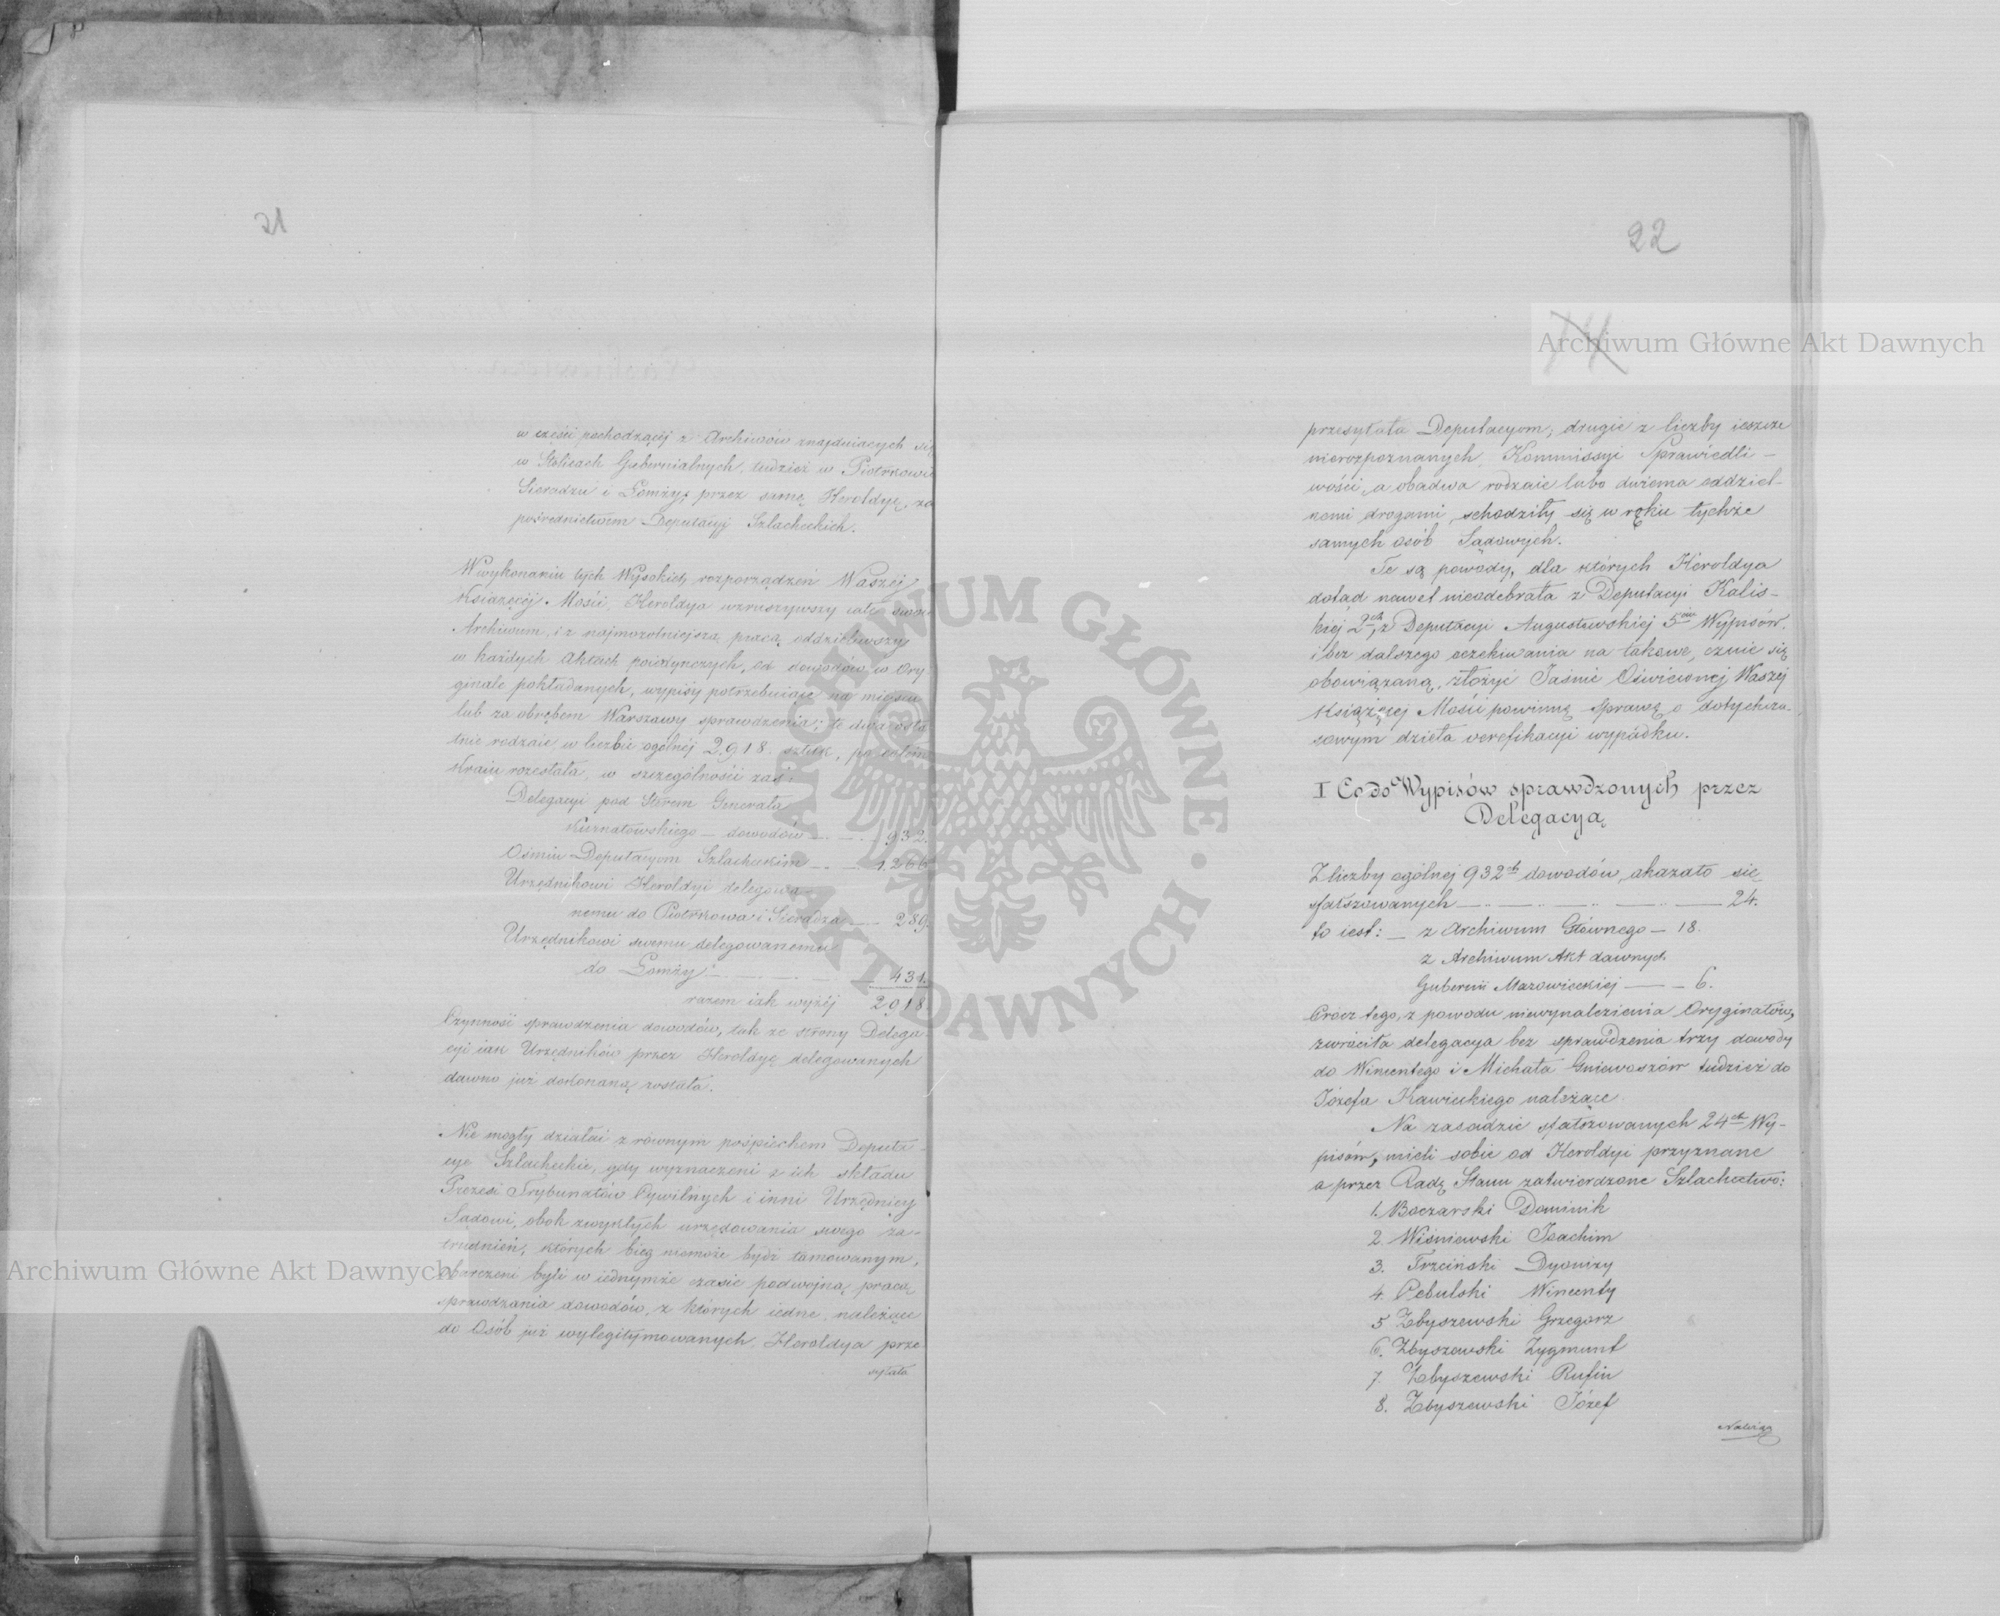 21
w części pochodzącéj z Archiwów znajduiących się
w Stolicach Gubernialnych, tudzież w Piotrkowie
Sieradzu i Łomży, przez samę Heroldyę, za
pośrednictwem Deputacyj Szlacheckich.
W wykonaniu tych Wysokich rozporządzeń Waszéj
Książęcéj Mości, Heroldya wzruszywszy całe swoie
Archiwum, i z najmozolniejszą pracą oddzieliwszy
w każdych Aktach poiedynczych, od dowodów w Ory-
ginale pokładanych, wypisy potrzebuiące na mieyscu
lub za obrębem Warszawy sprawdzenia; te dwa osta
tnie rodzaie w liczbie ogólnéj 2,918. sztuk, po całym
Kraiu rozesłała, w szczególności zaś:
Delegacyi pod Sterem Generała
Kurnatowskiego — dowodów — 932.
Ośmiu Deputacyom Szlacheckim — 1.266
Urzędnikowi Heroldyi delegowa-
nemu do Piotrkowa i Sieradza — 289.
Urzędnikowi swemu delegowanemu
do Łomży — 431.
razem iak wyżéj 2918.
Czynność sprawdzenia dowodów, tak ze strony Delega
cyi iak Urzędników przez Heroldyę delegowanych
dawno już dokonaną została.
Nie mogły działać z równym pośpiechem Deputa-
cye Szlacheckie, gdy wyznaczeni z ich składu
Prezesi Trybunałów Cywilnych i inni Urzędnicy
Sądowi, obok zwykłych urzędowania swego za-
trudnień, których bieg niemoże bydź tamowanym,
obarczeni byli w iednymże czasie podwójną pracą
sprawdzania dowodów, z których iedne, należące
do Osób już wylegitymowanych, Heroldya prze
syłała
22
14
przesyłała Deputacyom; drugie z liczby ieszcze
nierozpoznanych, Kommissyi Sprawiedli-
wości, a obadwa rodzaie lubo dwiema oddziel-
nemi drogami, schodziły się w ręku tychże
samych osób Sądowych.
Te są powody, dla których Heroldya
dotąd nawet nieodebrała z Deputacyi Kalis-
kiéj 2ch, z Deputacyi Augustowskiéj 5ciu Wypisów,
i bez dalszego oczekiwania na takowe, czuie się
obowiązaną, złożyć Jaśnie Oświeconéj Waszéj
Książęcej Mości powinną sprawę o dotychcza-
sowym dzieła verefikacyi wypadku.
I Co do Wypisów sprawdzonych przez
Delegacyą
Z liczby ogólnéj 932ch dowodów, okazało się
sfałszowanych — 24.
to iest: — z Archiwum Głównego — 18.
z Archiwum Akt dawnych
Gubernii Mazowieckiéj — 6.
Prócz tego, z powodu niewynalezienia Oryginałów,
zwróciła delegacya bez sprawdzenia trzy dowody
do Wincentego i Michała Gniewoszów tudzież do
Józefa Kawieckiego należące.
Na zasadzie sfałszowanych 24ch Wy-
pisów, mieli sobie od Heroldyi przyznane
a przez Radę Stanu zatwierdzone Szlachectwo:
1. Boczarski Dominik
2. Wiśniewski Joachim
3. Trzciński Dyonizy
4. Cebulski Wincenty
5 Zbyszewski Grzegorz
6. Zbyszewski Zygmunt
7. Zbyszewski Rufin
8. Zbyszewski Józef
Archiwum Główne Akt Dawnych
Archiwum Główne Akt Dawnych
ARCHIWUM GŁÓWNE AKT DAWNYCH